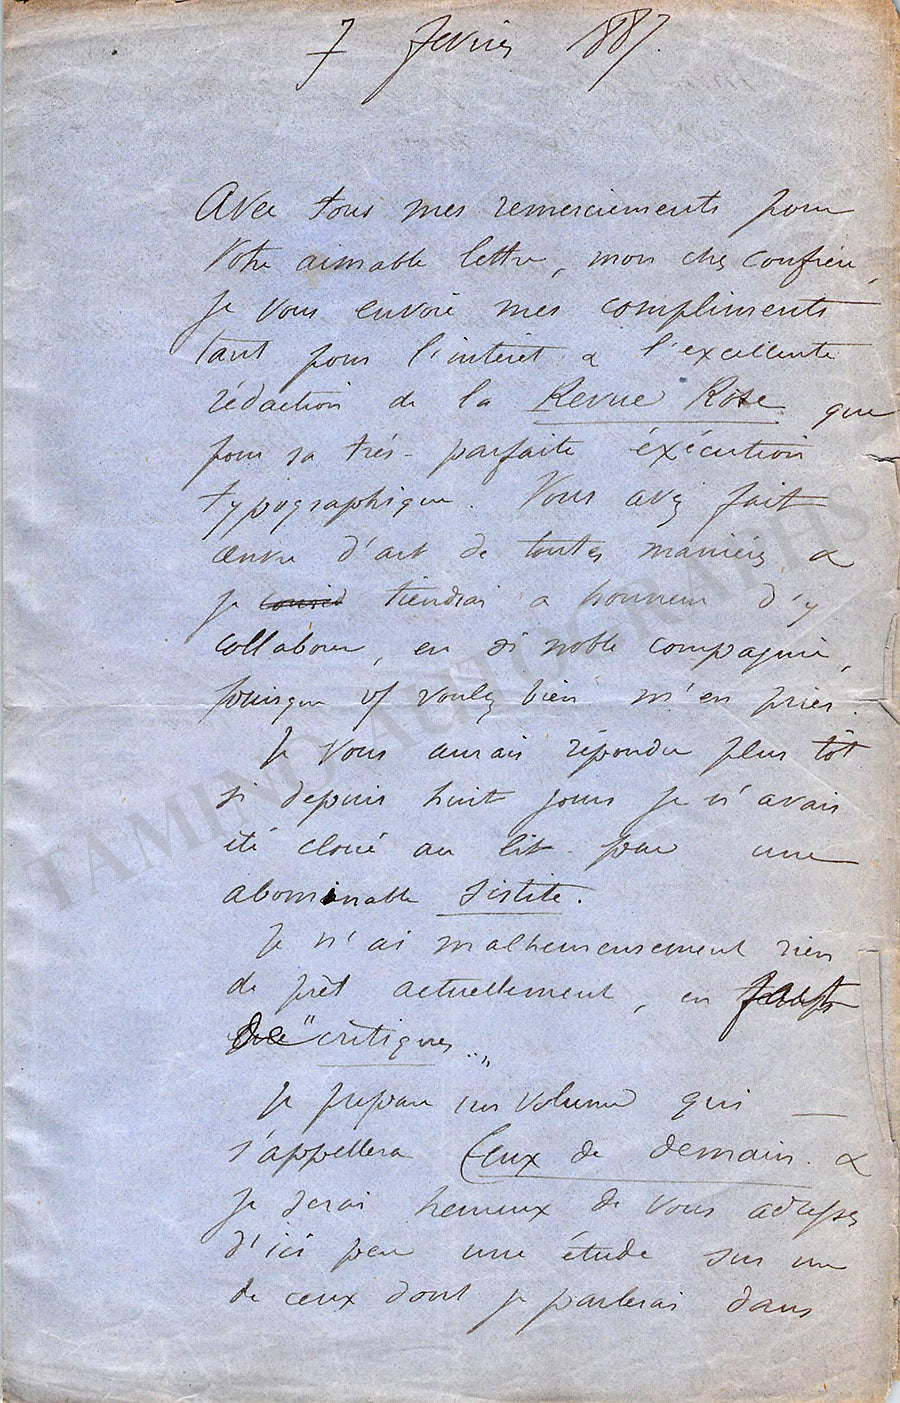 7 février 1887.
Avec tous mes remerciements pour
votre aimable lettre, mon cher confrère,
je vous envoie mes compliments
tant pour l'intérêt & l'excellente
rédaction de la Revue Rose que
pour sa très-parfaite éxécution
typographique. Vous avez fait
œuvre d'art de toutes manières &
je tiendrai a honneur d'y
collaborer, en si noble compagnie,
puisque vs voulez bien m'en prier.
Je vous aurais répondu plus tôt
si depuis huit jours je n'avais
été cloué au lit par une
abominable sistite.
Je n'ai malheureusement rien
de prêt actuellement, en fait
de "critiques..„
Je prépare un volume qui
s'appellera Ceux de demain &
je serai heureux de vous adresser
d'ici peu une étude sur un
de ceux dont je parlerai dans
TAMINO AUTOGRAPHS